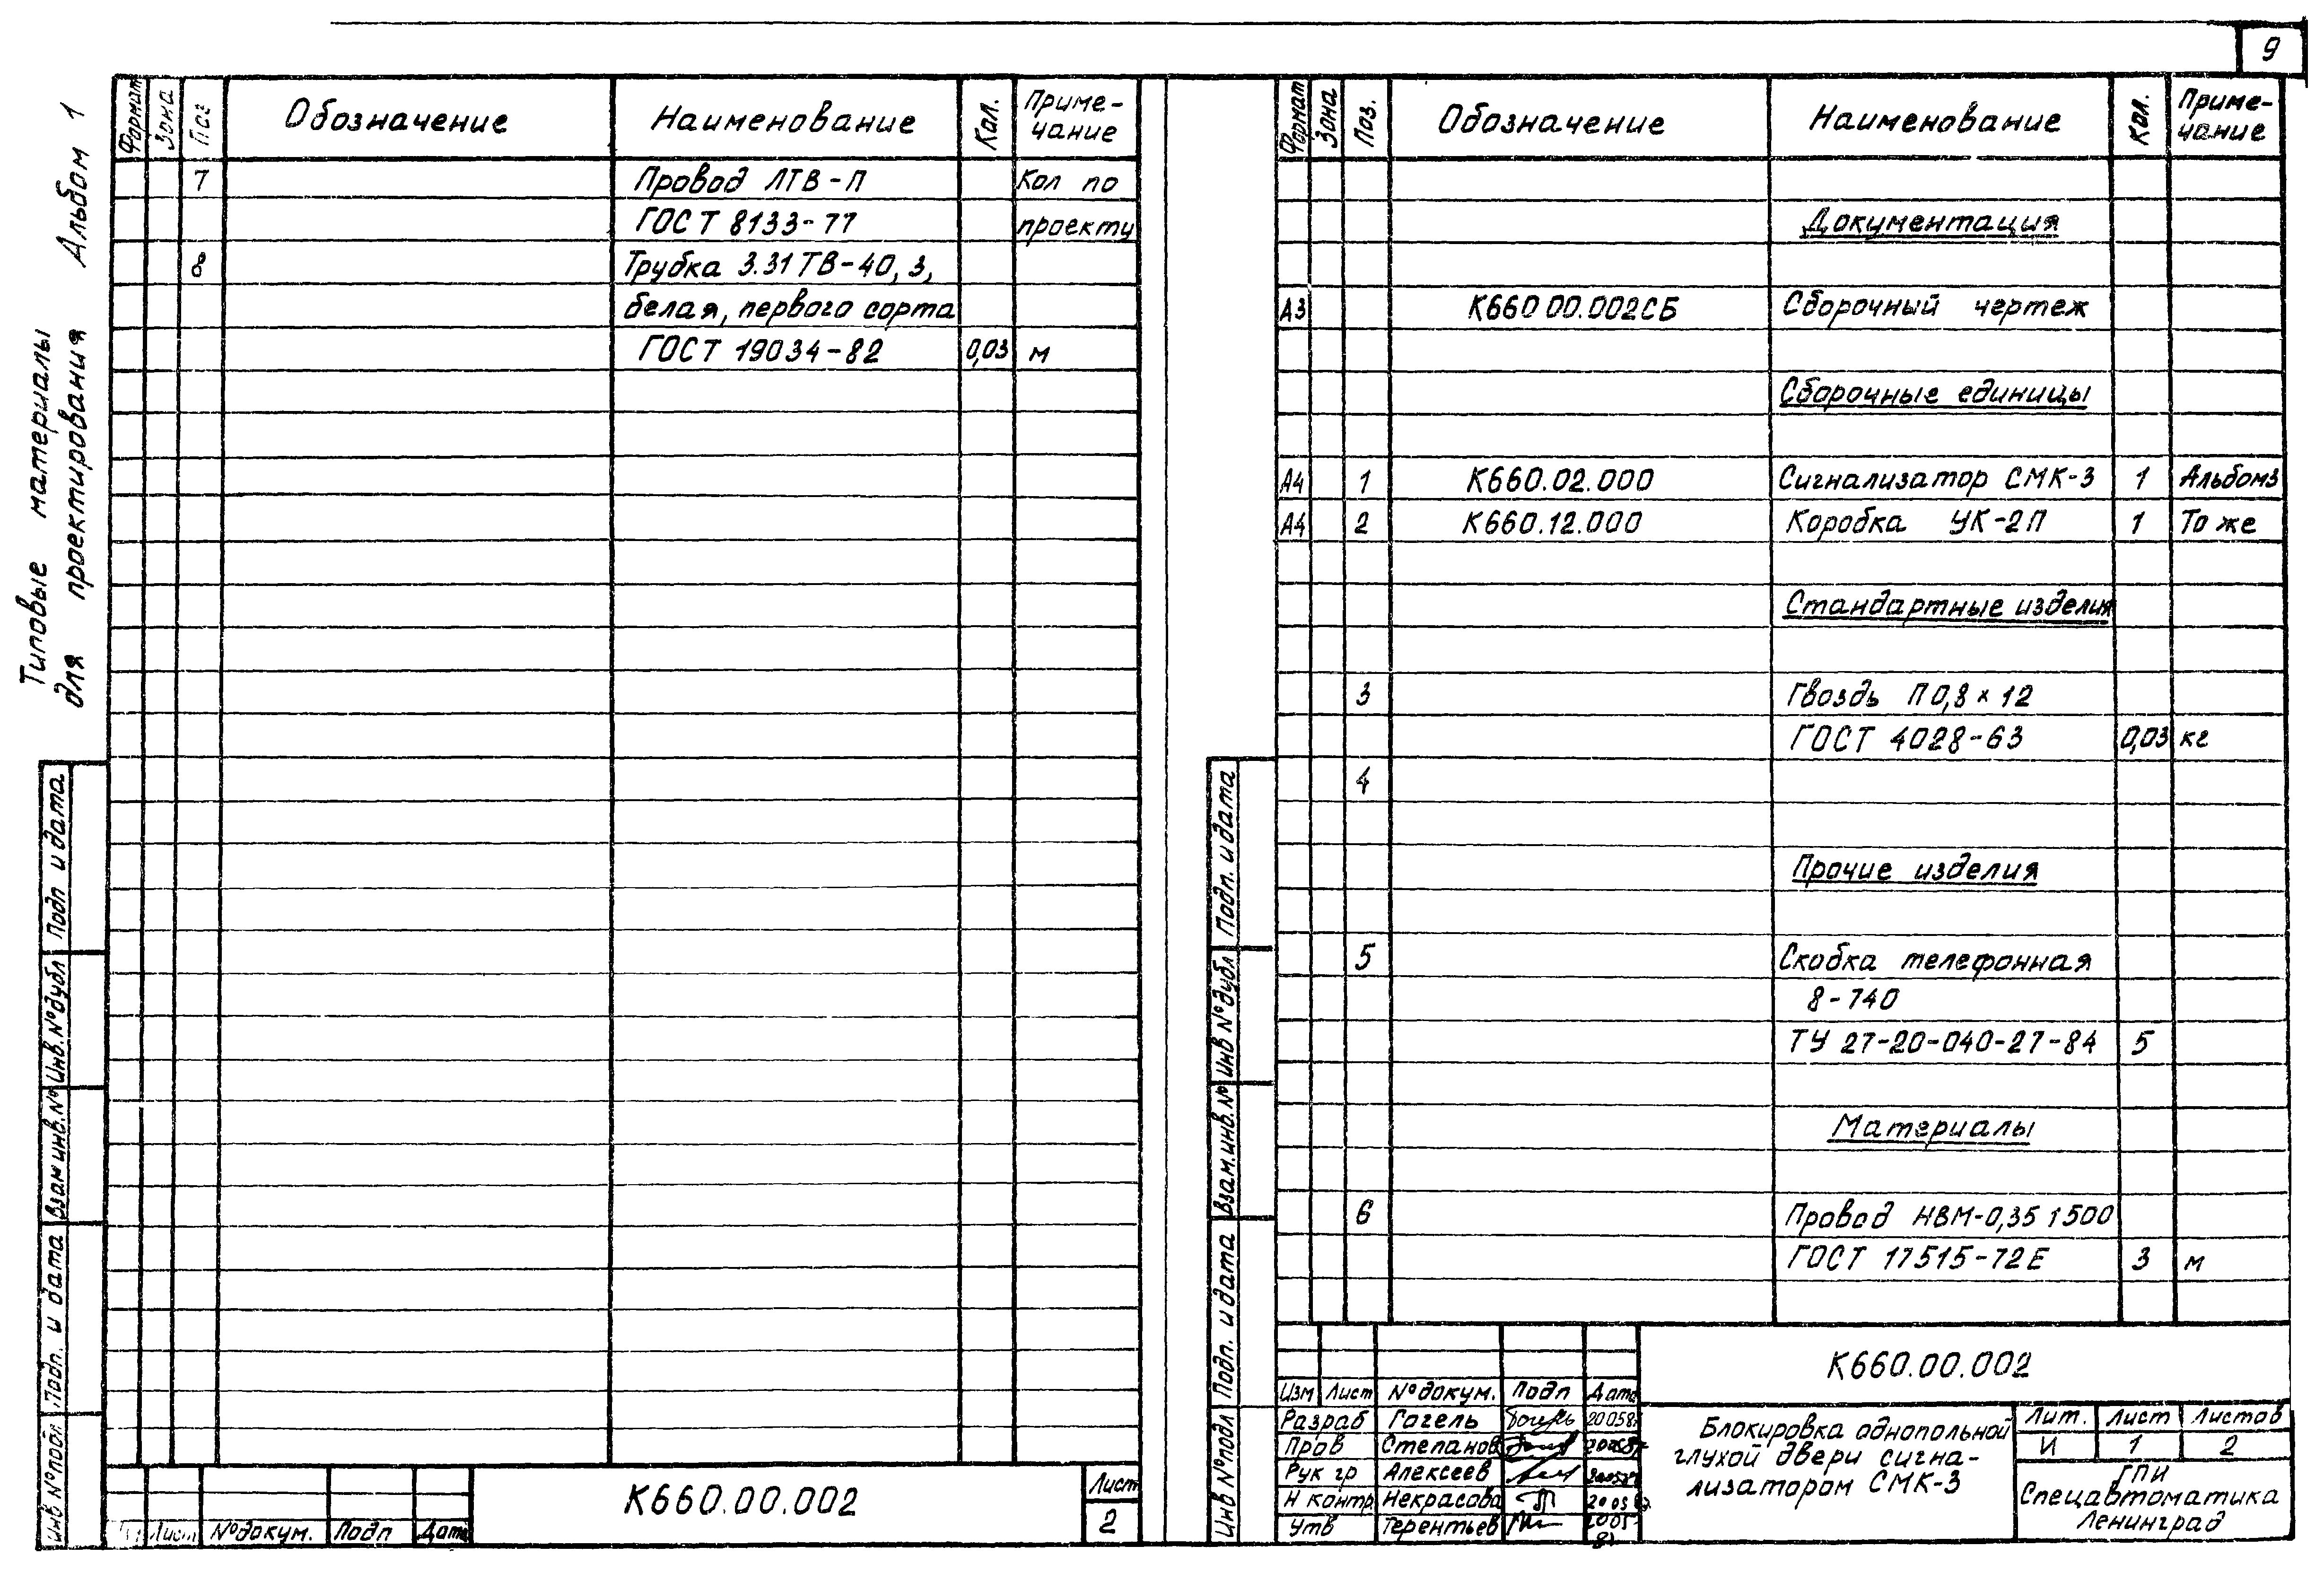 9
Типовые материалы
для проектирования Альбом 1
Формат Зона Поз Обозначение Наименование Кол. Приме-
чание
7 Провод ЛТВ-П Кол по
ГОСТ 8133-77 проекту
8 Трубка 3.31 ТВ-40, 3,
белая, первого сорта
ГОСТ 19034-82 0,03 м
Подп и дата
Инв.№дубл
Взам инв.№
Подп. и дата
Инв №подл
Лист №докум. Подп Дата
К660.00.002
Лист
2
Формат Зона Поз. Обозначение Наименование Кол. Приме-
чание
Документация
А3 К660 00.002СБ Сборочный чертеж
Сборочные единицы
А4 1 К660.02.000 Сигнализатор СМК-3 1 Альбом3
А4 2 К660.12.000 Коробка УК-2П 1 То же
Стандартные изделия
3 Гвоздь П 0,8×12
ГОСТ 4028-63 0,03 кг
4
Прочие изделия
5 Скобка телефонная
8-740
ТУ 27-20-040-27-84 5
Материалы
6 Провод НВМ-0,35 1 500
ГОСТ 17515-72Е 3 м
Подп. и дата
Инв №дубл
Взам.инв.№
Подп. и дата
Инв №подл
К660.00.002
Изм Лист №докум. Подп Дата
Разраб Гогель
Пров Степанов
Рук гр Алексеев
Н контр Некрасова
Утв Терентьев
Блокировка однопольной
глухой двери сигна-
лизатором СМК-3
Лит. Лист Листов
И 1 2
ГПИ
Спецавтоматика
Ленинград